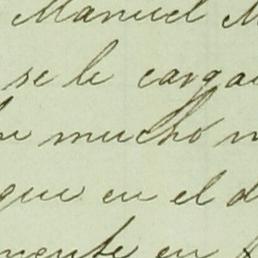 Manuel M
se le carga
mucho
que en el d
mente en